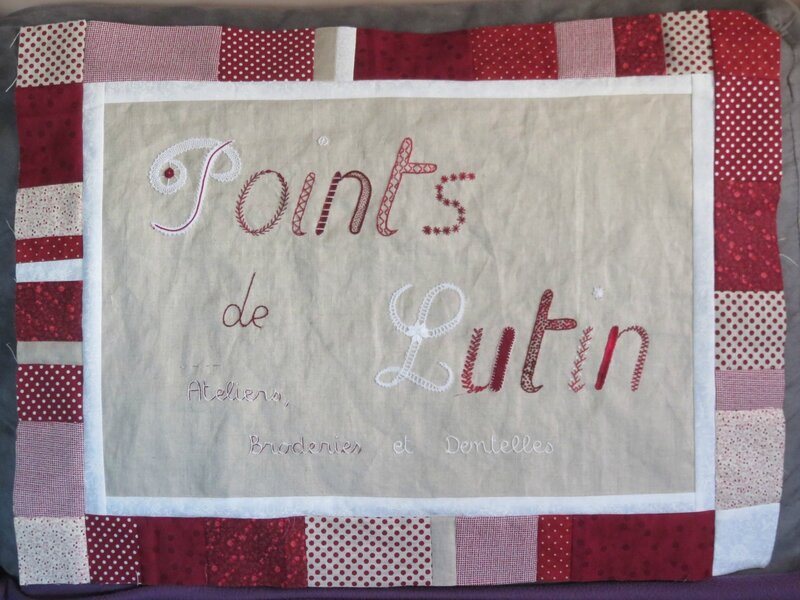 Points
de
Lutin
Ateliers,
Broderies et Dentelles